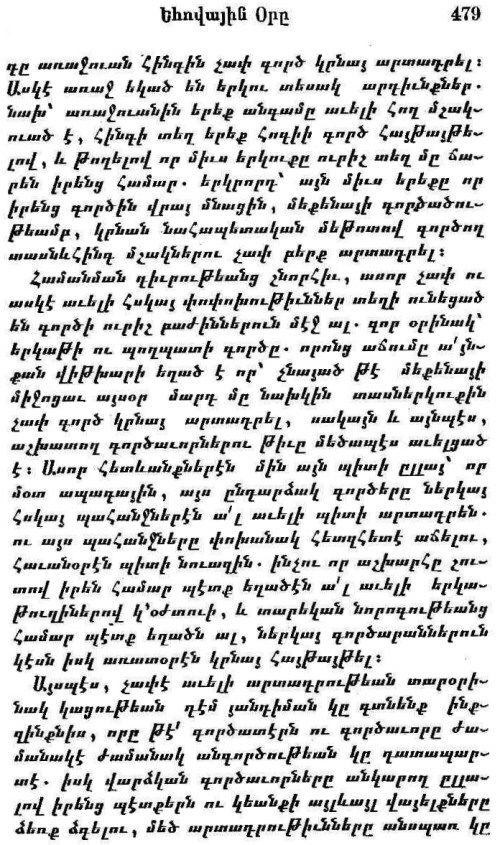 Եհովային Օրը 479
դը առաջուան Հինգին չափ գործ կրնայ արտադրել։
Ասկէ առաջ եկած են երկու տեսակ արդիւնքներ.
նախ՝ առաջուանին երեք անգամը աւելի հող մշակ-
ուած է, Հինգի տեղ երեք հոգիի գործ հայթայթե-
լով, և թողելով որ միւս երկուքը ուրիշ տեղ մը ճա-
րեն իրենց համար. երկրորդ՝ այն միւս երեքը որ
իրենց գործին վրայ մնացին, մեքենայի գործածու-
թեամբ, կրնան նահապետական մեթոտով գործող
տասնևհինգ մշակներու չափ բերք արտադրել։
Համանման դիւրութեանց շնորհիւ, ասոր չափ ու
ասկէ աւելի հսկայ փոփոխութիւններ տեղի ունեցած
են գործի ուրիշ բաժիններուն մէջ ալ. զոր օրինակ՝
երկաթի ու պողպատի գործը. որոնց աճումը ա՛յն-
քան վիթխարի եղած է որ՝ չնայած թէ մեքենայի
միջոցաւ այսօր մարդ մը նախկին տասներկուքին
չափ գործ կրնայ արտադրել, սակայն և այնպէս,
աշխատող գործաւորներու թիւը մեծապէս աւելցած
է։ Ասոր հետևանքներէն մին այն պիտի ըլլայ՝ որ
մօտ ապագային, այս ընդարձակ գործերը ներկայ
հսկայ պահանջներէն ա՛լ աւելի պիտի արտադրեն.
ու այս պահանջները փոխանակ հետզհետէ աճելու,
հաւանօրէն պիտի նուազին. ինչու որ աշխարհը շու-
տով իրեն համար պէտք եղածէն ա՛լ աւելի երկա-
թուղիներով կ՚օժտուի, և տարեկան նորոգութեանց
համար պէտք եղածն ալ, ներկայ գործարաններուն
կէսն իսկ առատօրէն կրնայ հայթայթել։
Այսպէս, չափէ աւելի արտադրութեան տարօրի-
նակ կացութեան դէմ յանդիման կը գտնենք ինք-
զինքնիս, որը թէ՛ գործատէրն ու գործաւորը ժա-
մանակէ ժամանակ անգործութեան կը դատապար-
տէ. իսկ վարձկան գործաւորները անկարող ըլլա-
լով իրենց պէտքերն ու կեանքի այլևայլ վայելքները
ձեռք ձգելու, մեծ արտադրութիւնները անսպառ կը